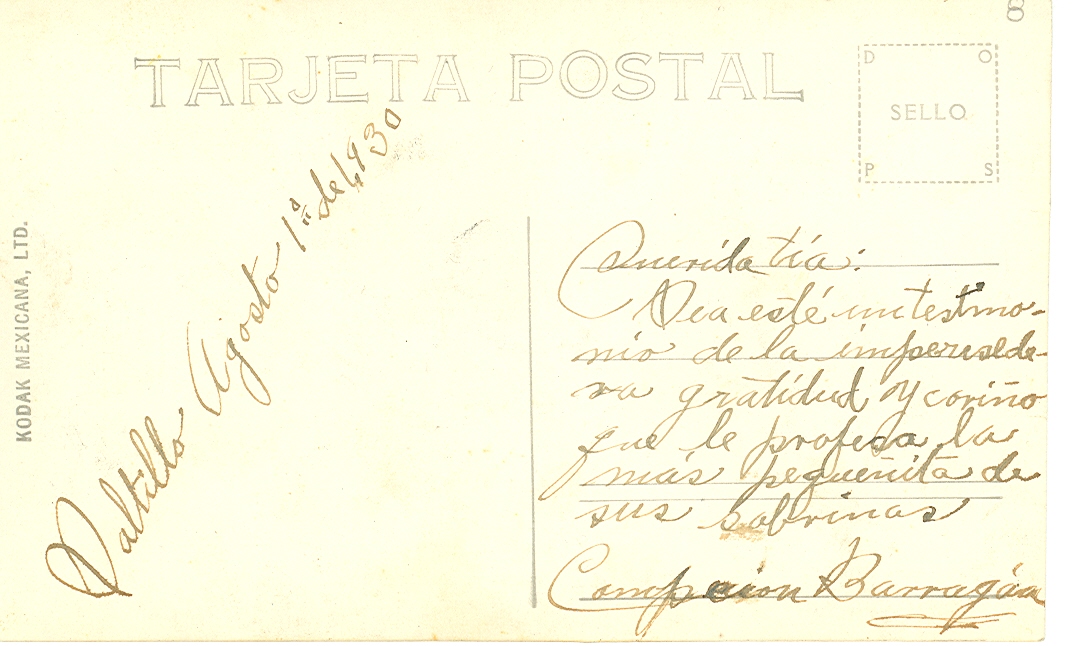 8
TARJETA POSTAL
D O
SELLO
P S
KODAK MEXICANA, LTD.
Saltillo Agosto 1º de 1,930
Querida tía:
Sea esté un testimo-
nio de la imperesede-
ra gratidud y coriño
que le profesa la
más pequeñita de
sus sobrinas
Barragán